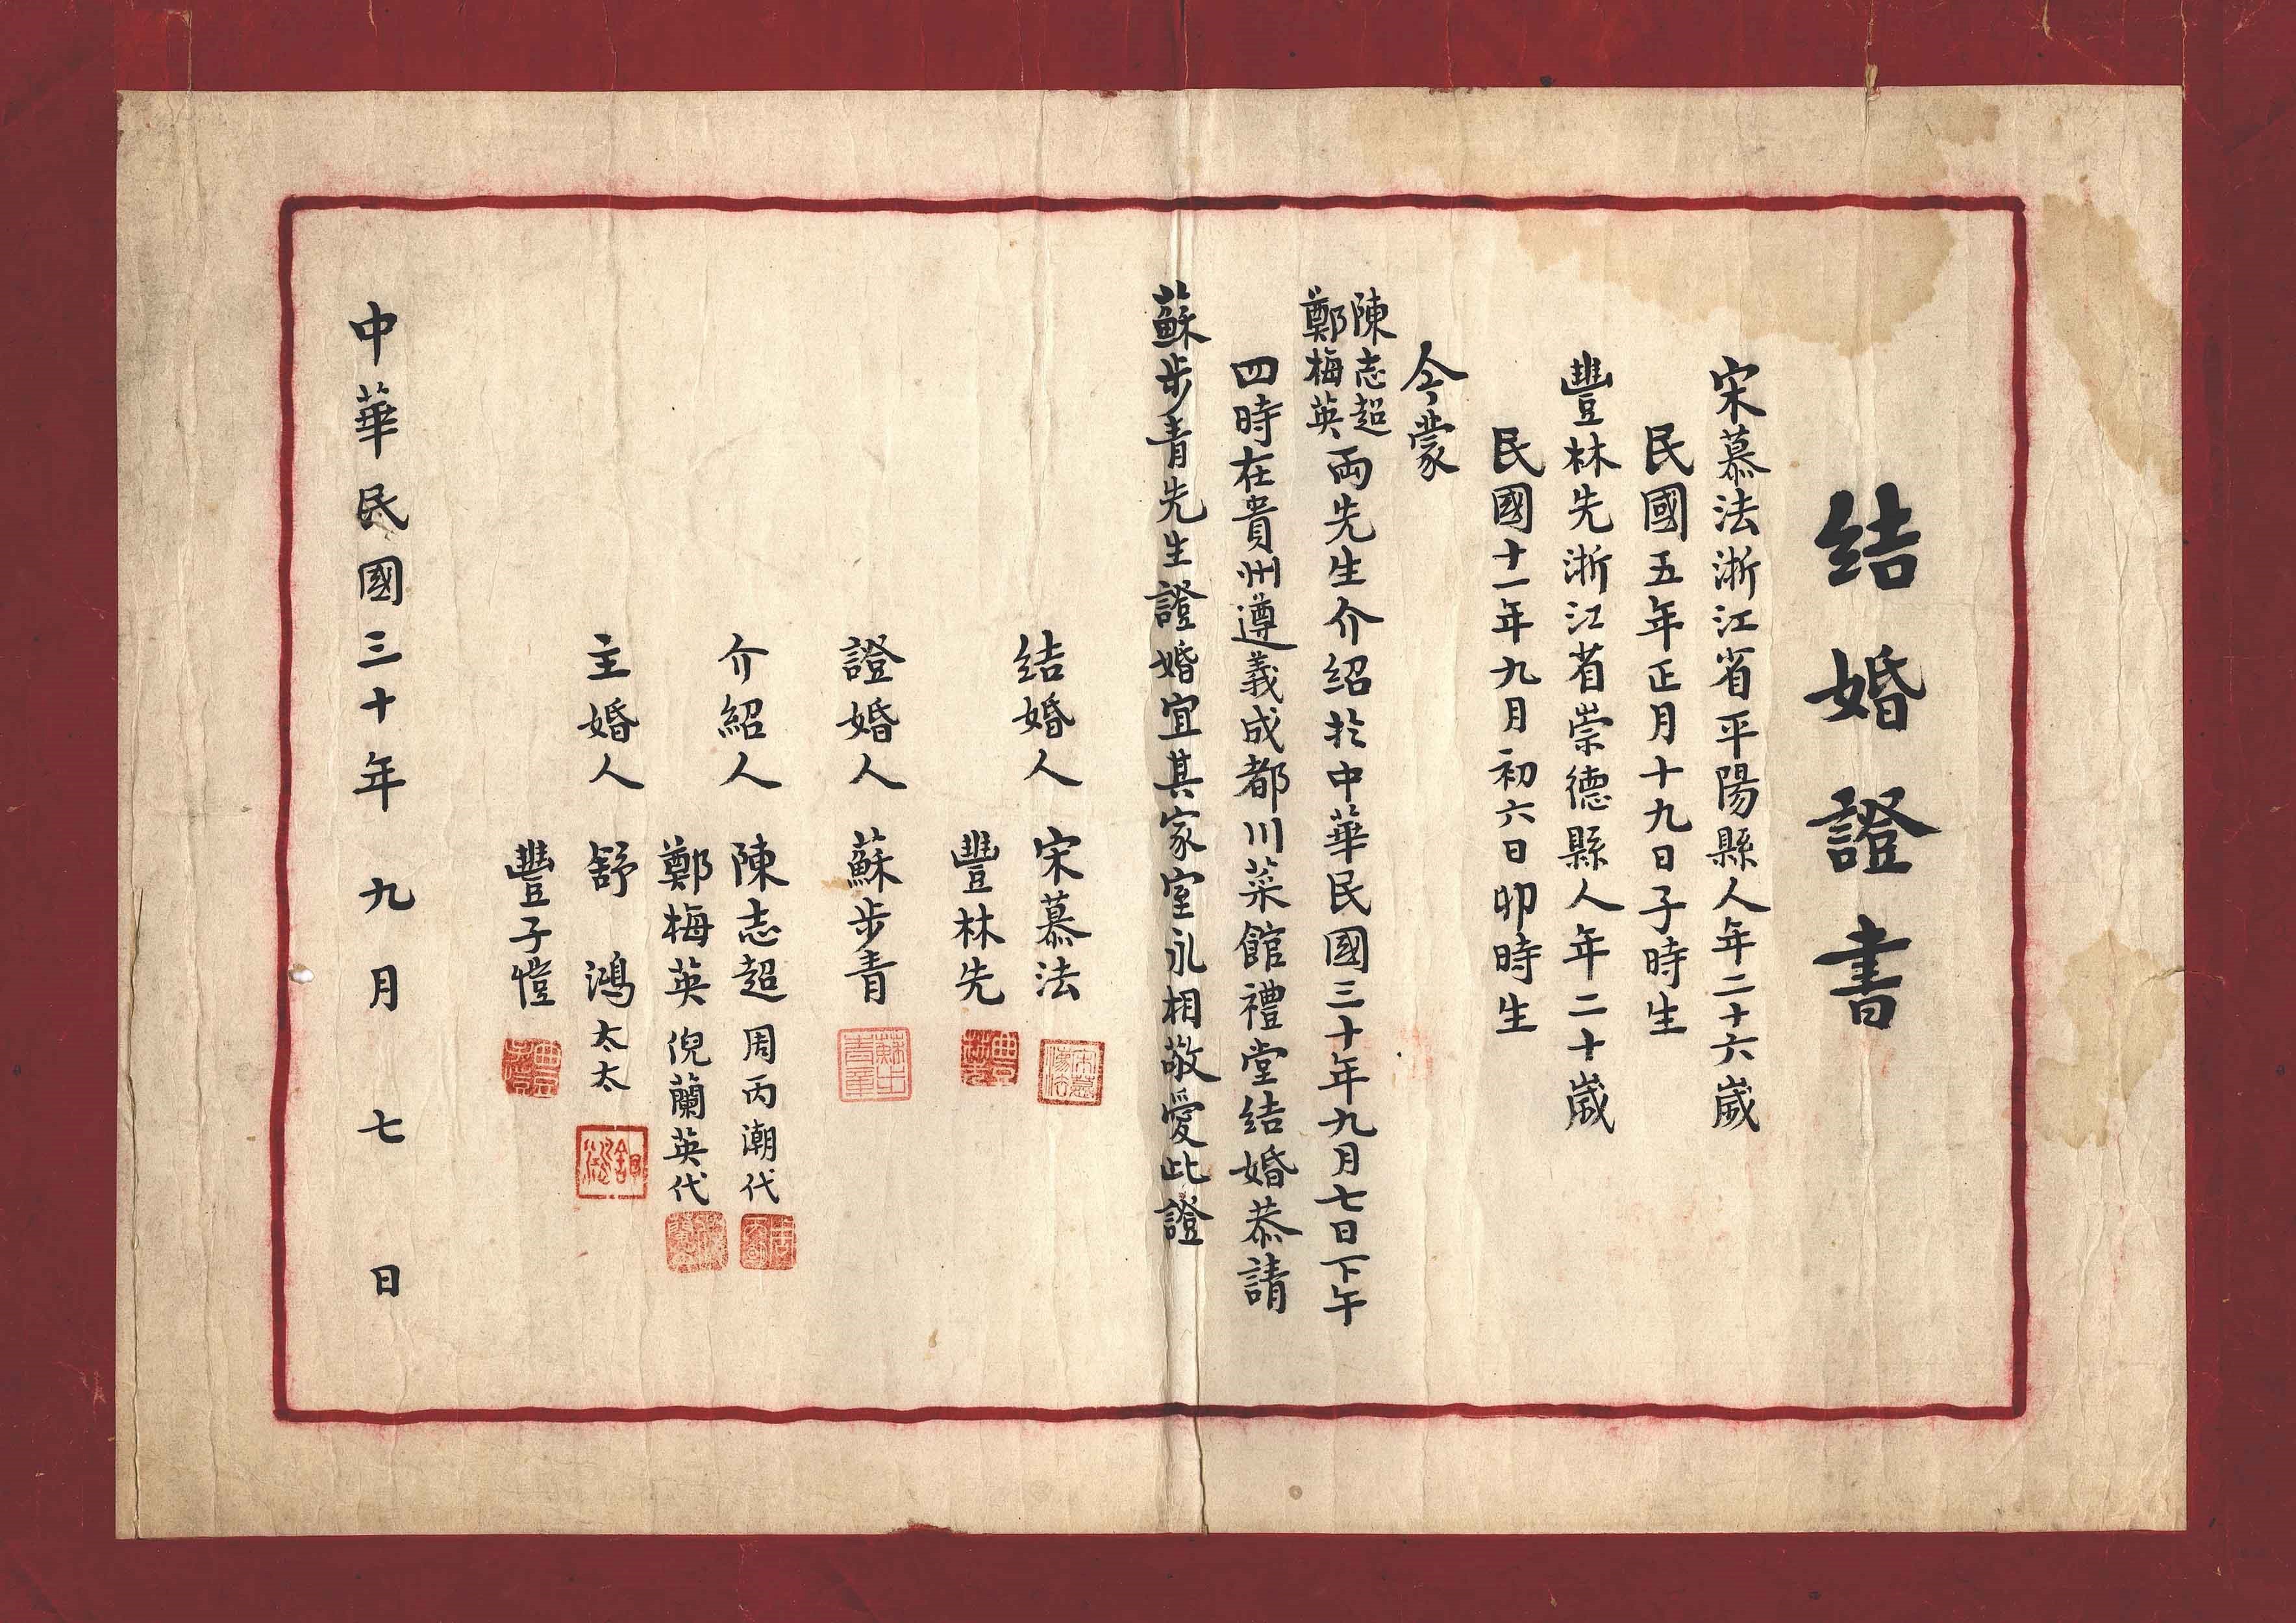 結婚證書
宋慕法浙江省平陽縣人年二十六歲
民國五年正月十九日子時生
豐林先浙江省崇德縣人年二十歲
民國十一年九月初六日卯時生
今蒙
陳志超
鄭梅英
両先生介紹於中華民國三十年九月七日下午
四時在貴州遵義成都川菜館禮堂结婚恭請
蘇步青先生證婚宜其家室永相敬愛此證
结婚人 宋慕法
豐林先
證婚人 蘇步青
介紹人 陳志超 周丙潮代
鄭梅英 倪蘭英代
主婚人 舒鴻太太
豐子愷
中華民國三十年九月七日